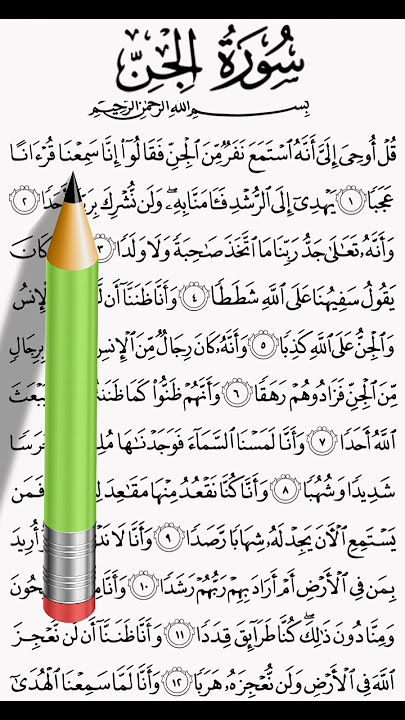 سُورَةُ الجِنِّ
بِسْمِ اللهِ الرَّحْمٰنِ الرَّحِيمِ
قُلْ أُوحِيَ إِلَيَّ أَنَّهُ ٱسْتَمَعَ نَفَرٌ مِّنَ ٱلْجِنِّ فَقَالُوٓا۟ إِنَّا سَمِعْنَا قُرْءَانًا
عَجَبًا ١ يَهْدِىٓ إِلَى ٱلرُّشْدِ فَـَٔامَنَّا بِهِۦ وَلَن نُّشْرِكَ ٢
وَأَنَّهُۥ تَعَٰلَىٰ جَدُّ رَبِّنَا مَا ٱتَّخَذَ صَٰحِبَةً وَلَا وَلَدًا ٣ كَانَ
يَقُولُ سَفِيهُنَا عَلَى ٱللَّهِ شَطَطًا ٤ وَأَنَّا ظَنَنَّآ أَن ٱلْإِنسُ
وَٱلْجِنُّ عَلَى ٱللَّهِ كَذِبًا ٥ وَأَنَّهُۥ كَانَ رِجَالٌ مِّنَ ٱلْإِنسِ بِرِجَالٍ
مِّنَ ٱلْجِنِّ فَزَادُوهُمْ رَهَقًا ٦ وَأَنَّهُمْ ظَنُّوا۟ كَمَا
ٱللَّهُ أَحَدًا ٧ وَأَنَّا لَمَسْنَا ٱلسَّمَآءَ فَوَجَدْنَٰهَا
شَدِيدًا وَشُهُبًا ٨ وَأَنَّا كُنَّا نَقْعُدُ مِنْهَا مَقَٰعِدَ فَمَن
يَسْتَمِعِ ٱلْـَٔانَ يَجِدْ لَهُۥ شِهَابًا رَّصَدًا ٩ وَأَنَّا لَا أُرِيدَ
بِمَن فِى ٱلْأَرْضِ أَمْ أَرَادَ بِهِمْ رَبُّهُمْ رَشَدًا ١٠ وَأَنَّا
وَمِنَّا دُونَ ذَٰلِكَ كُنَّا طَرَآئِقَ قِدَدًا ١١ وَأَنَّا ظَنَنَّآ أَن لَّن نُّعْجِزَ
ٱللَّهَ فِى ٱلْأَرْضِ وَلَن نُّعْجِزَهُۥ هَرَبًا ١٢ وَأَنَّا لَمَّا سَمِعْنَا ٱلْهُدَىٰٓ